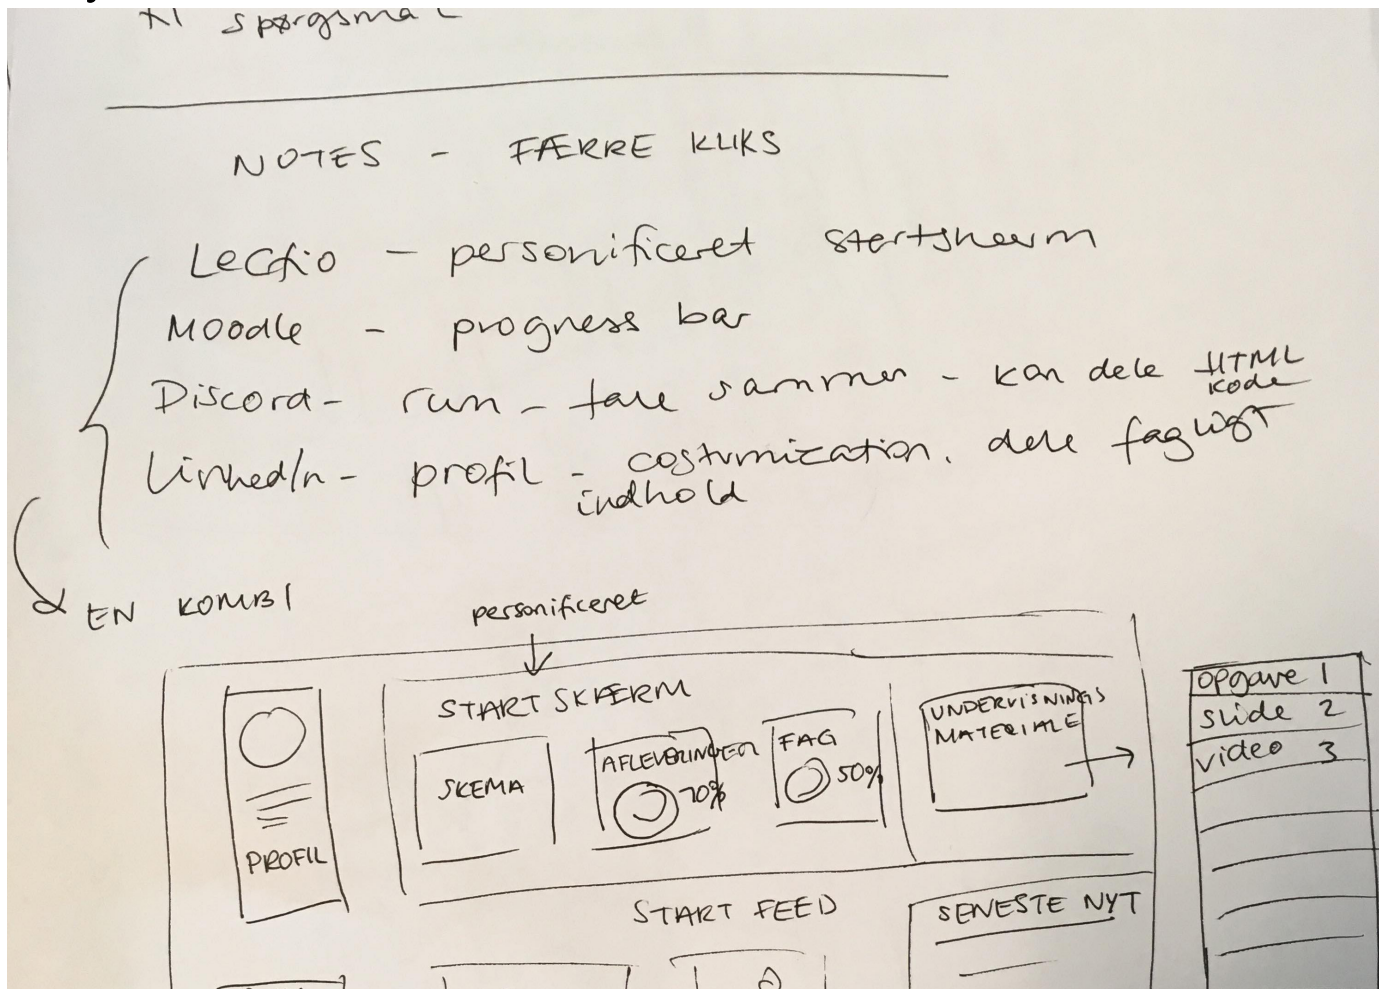 spørgsmål
NOTES - FÆRRE KLIKS
Lectio - personificeret startskærm
Moodle - progress bar
Discord - rum - tale sammen - kan dele HTML
kode
LinkedIn - profil - costumization. dele fagligt
indhold
EN KOMBI
personificeret
START SKÆRM
SKEMA
AFLEVERINGER
70%
FAG
50%
UNDERVISNINGS
MATERIALE
opgave 1
slide 2
video 3
PROFIL
START FEED
SENESTE NYT